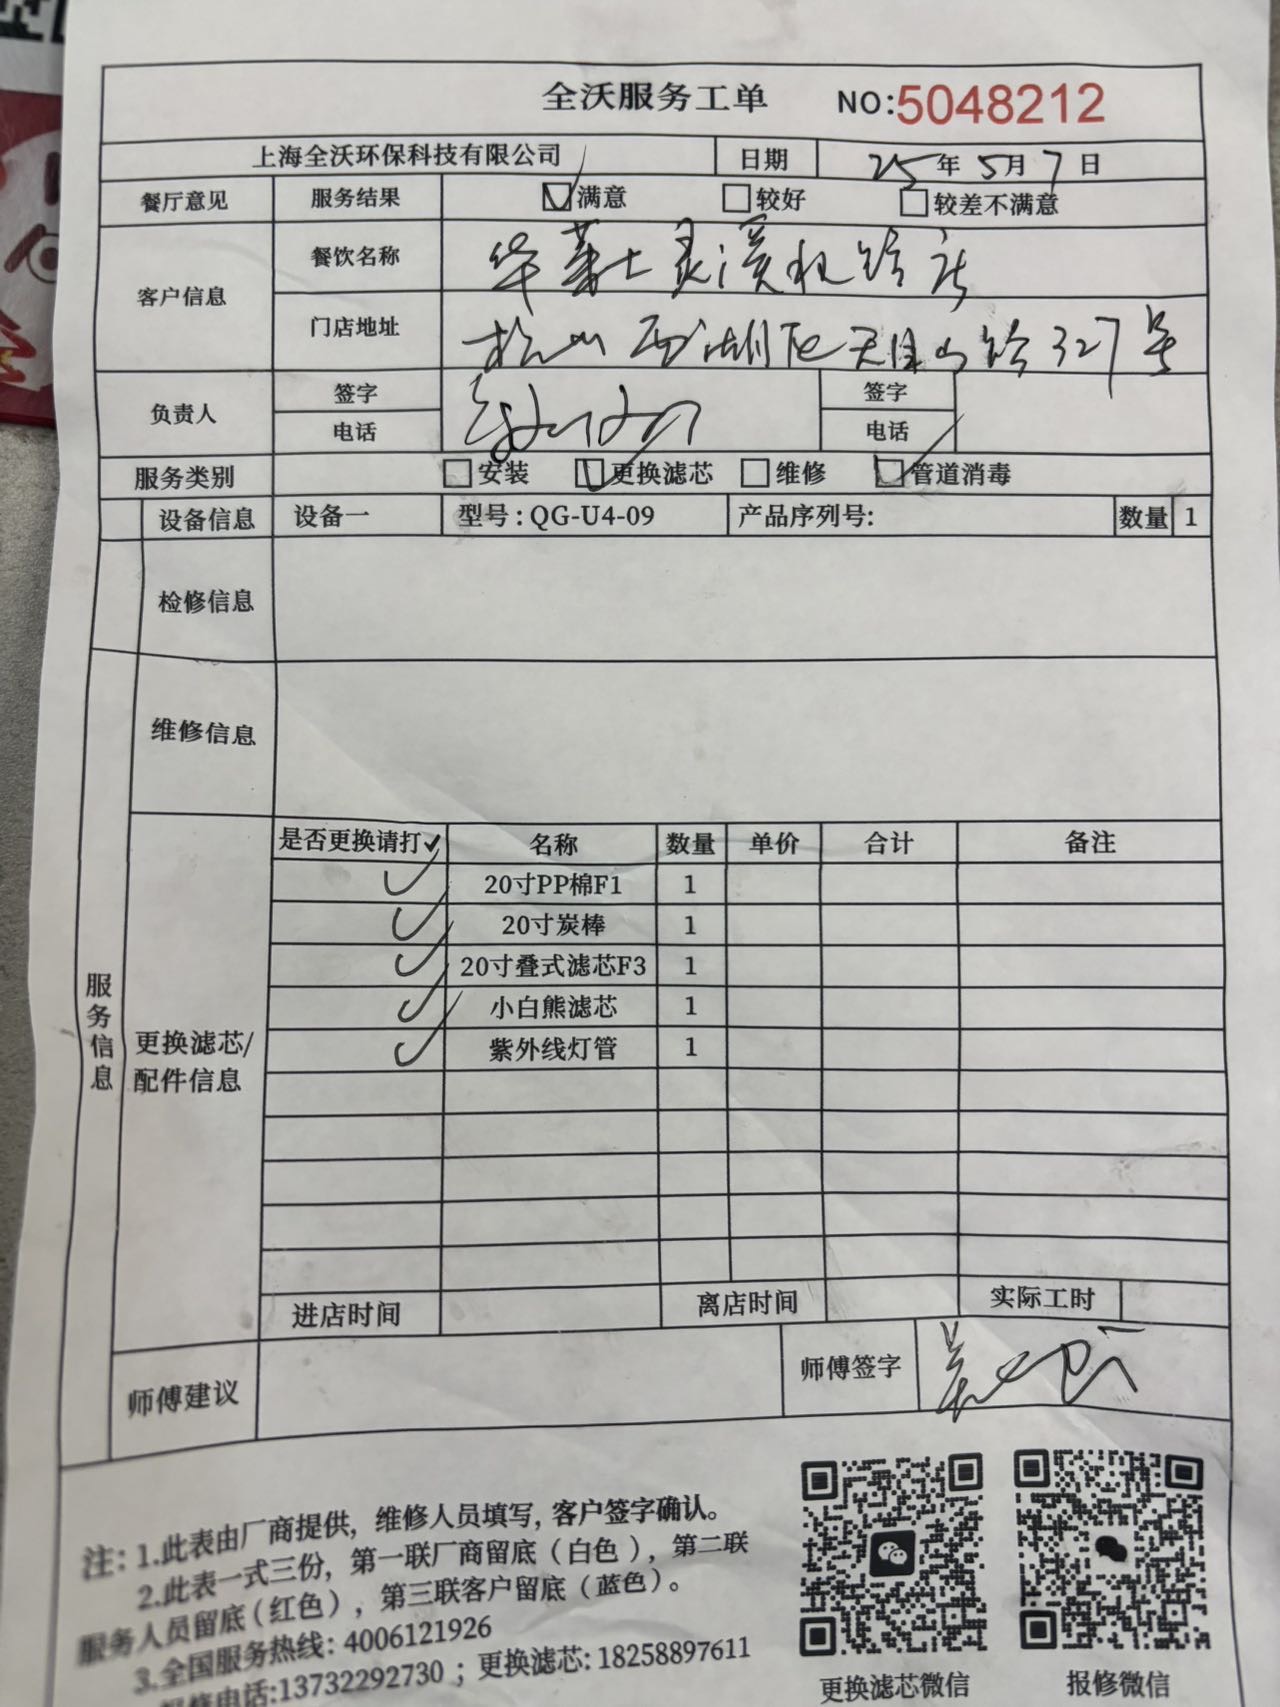 全沃服务工单 NO:5048212
上海全沃环保科技有限公司 日期 25年5月7日
餐厅意见 服务结果 满意 较好 较差不满意
客户信息 餐饮名称 华莱士灵溪北路店
门店地址 杭州西湖区天目山路327号
负责人 签字 签字
电话 电话
服务类别 安装 更换滤芯 维修 管道消毒
设备信息 设备一 型号:QG-U4-09 产品序列号: 数量 1
检修信息
维修信息
服务信息
更换滤芯/
配件信息
是否更换请打✓ 名称 数量 单价 合计 备注
✓ 20寸PP棉F1 1
✓ 20寸炭棒 1
✓ 20寸叠式滤芯F3 1
✓ 小白熊滤芯 1
✓ 紫外线灯管 1
进店时间 离店时间 实际工时
师傅建议 师傅签字
注: 1.此表由厂商提供, 维修人员填写, 客户签字确认。
2.此表一式三份, 第一联厂商留底(白色), 第二联
服务人员留底(红色), 第三联客户留底(蓝色)。
3.全国服务热线: 4006121926
报修电话:13732292730 ; 更换滤芯: 18258897611
更换滤芯微信 报修微信